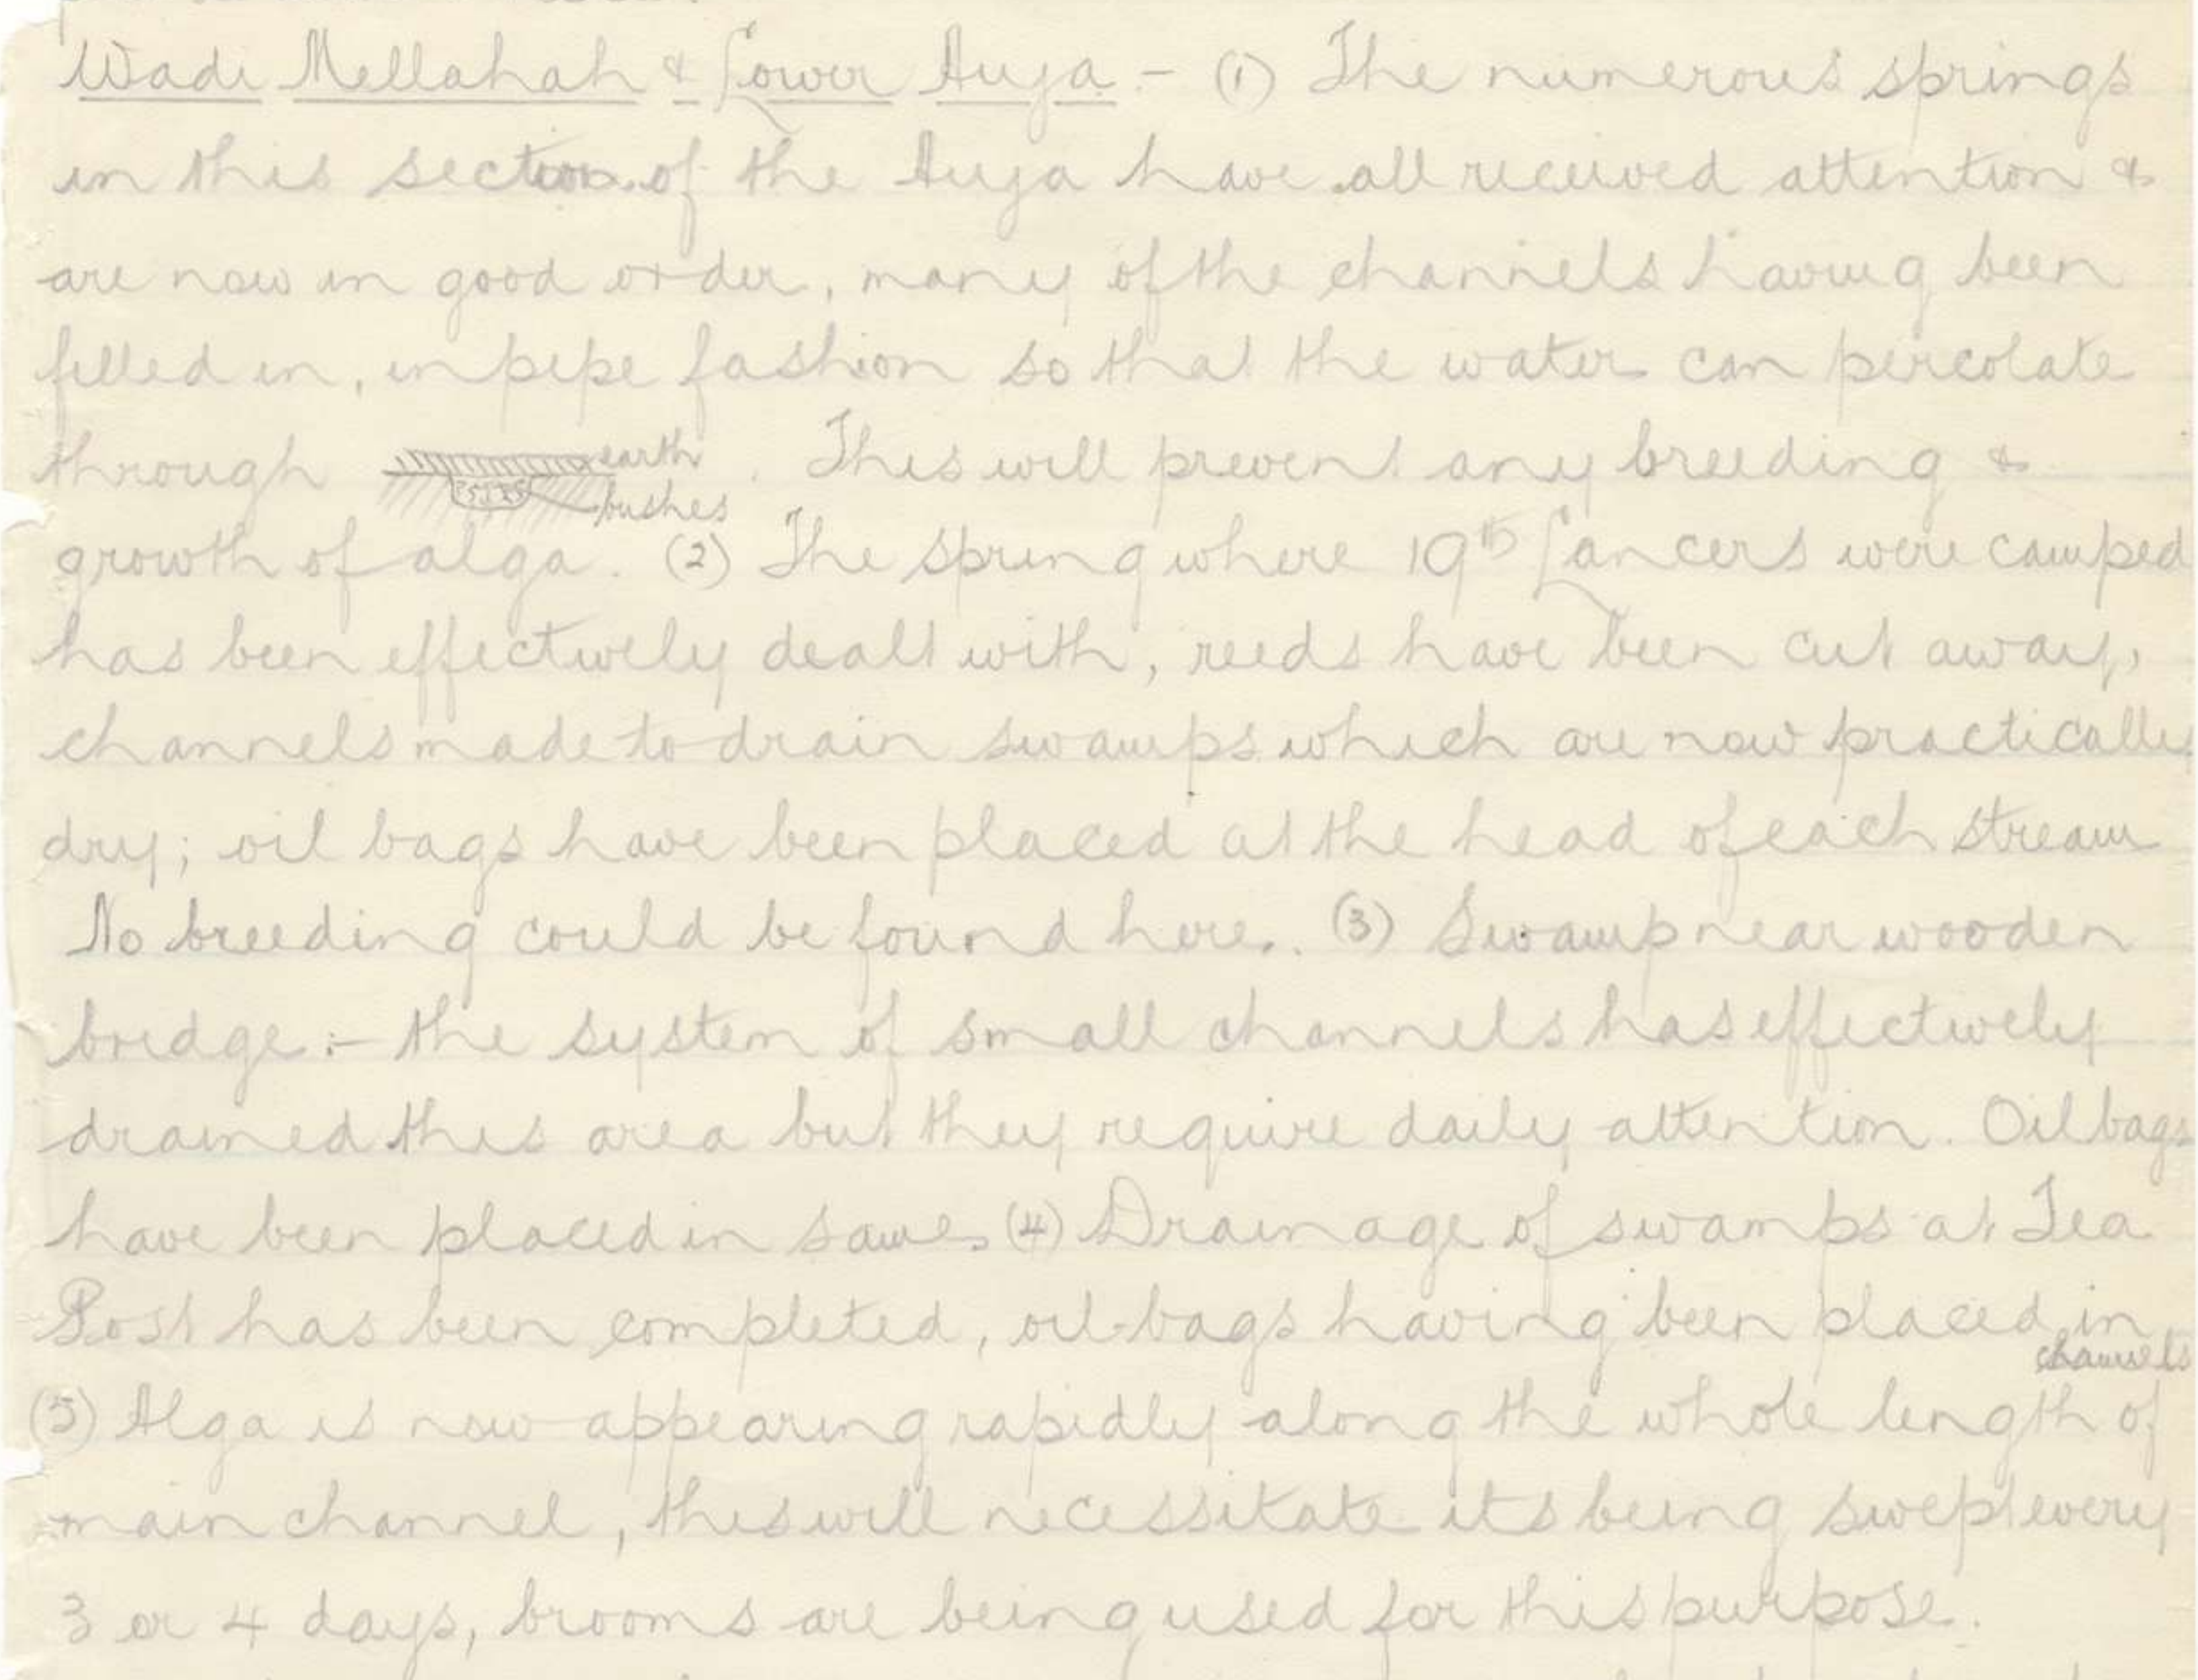 Wadi Mellahah & Lower Auja - (1) The numerous springs
in this section of the Auja have all received attention &
are now in good order, many of the channels having been
filled in, in pipe fashion so that the water can percolate
through earth . This will prevent any breeding &
bushes
growth of alga. (2) The spring where 19th Lancers were camped
has been effectively dealt with, reeds have been cut away,
channels made to drain swamps which are now practically
dry; oil bags have been placed at the head of each stream
No breeding could be found here. (3) Swamp near wooden
bridge :- the system of small channels has effectively
drained this area but they require daily attention. Oil bags
have been placed in same. (4) Drainage of swamps at Tea
Post has been completed, oil-bags having been placed in
channels
(5) Alga is now appearing rapidly along the whole length of
main channel, this will necessitate its being swept every
3 or 4 days, brooms are being used for this purpose.